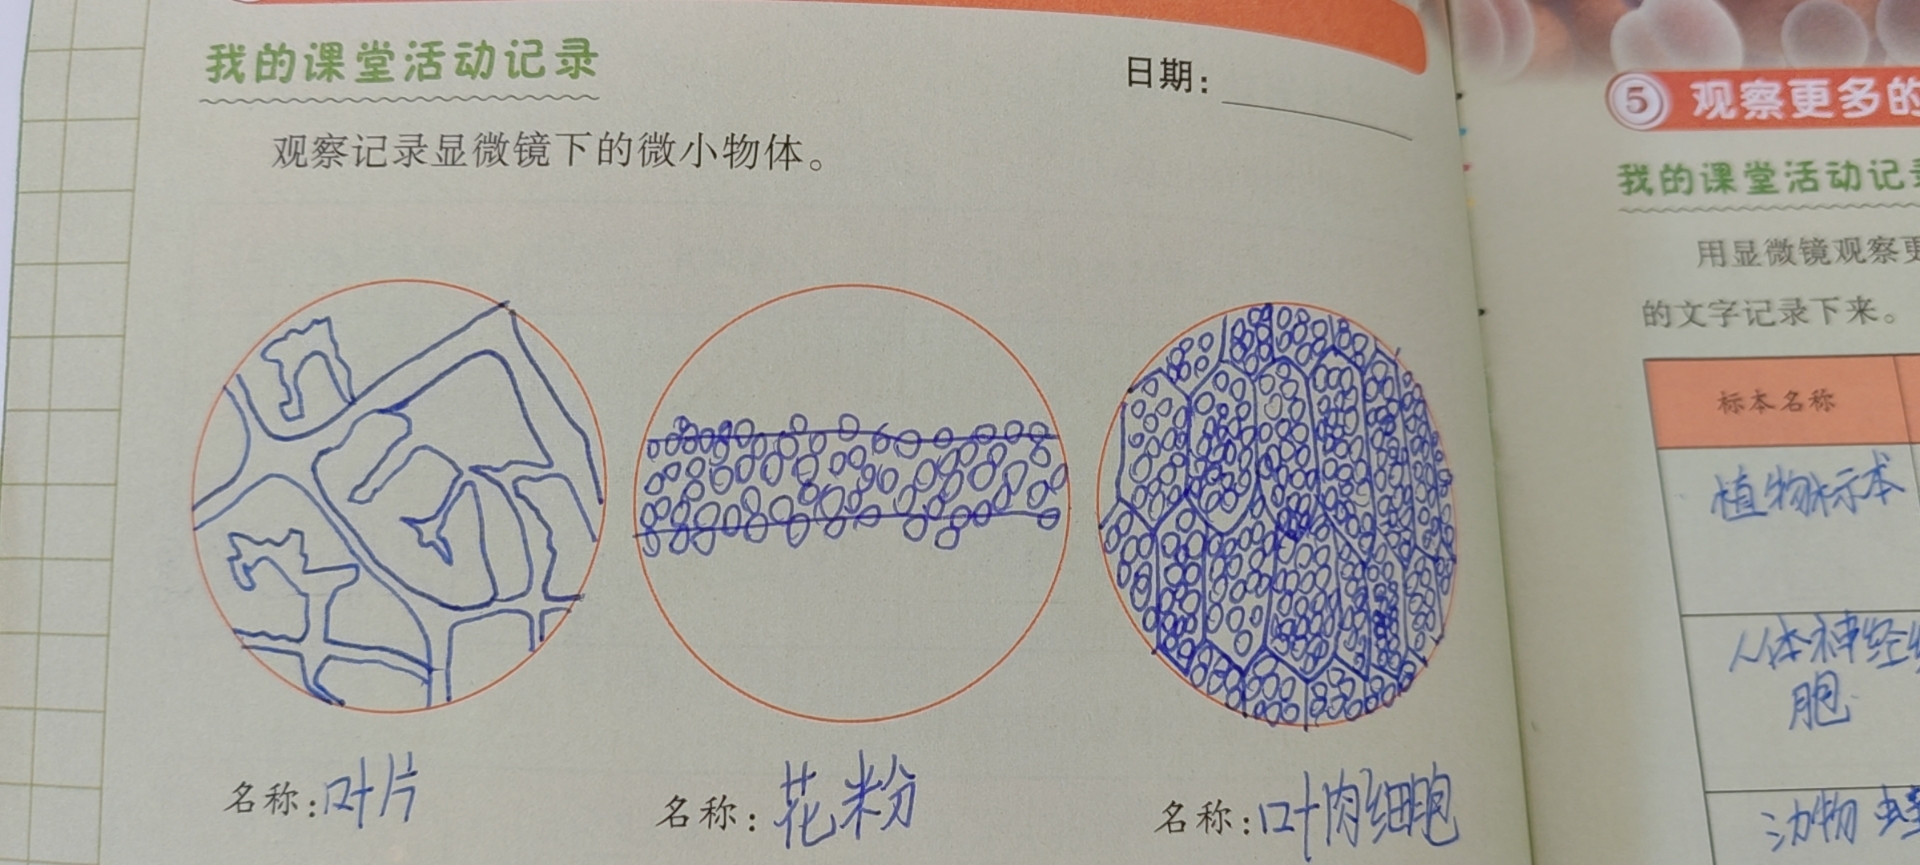 我的课堂活动记录
日期:
观察记录显微镜下的微小物体。
名称:叶片
名称:花粉
名称:叶肉细胞
5 观察更多的
我的课堂活动记
用显微镜观察更
的文字记录下来。
标本名称
植物标本
人体神经
胞
动物